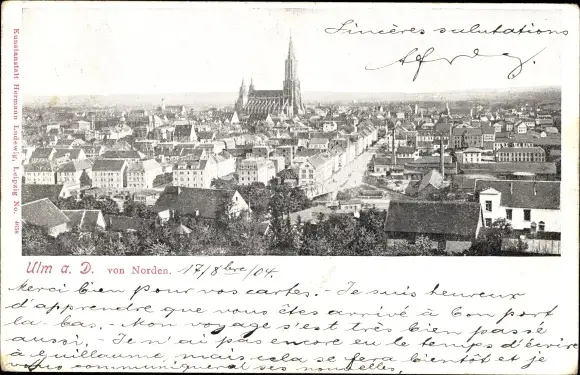 Sincères salutations
Kunstanstalt Hermann Ludewig, Leipzig No.
Ulm a. D. von Norden. 17/8bre/04.
Merci bien pour vos cartes. - Je suis heureux
d'apprendre que vous êtes arrivé à bon port
là-bas. - Mon voyage s'est très bien passé
aussi. - Je n'ai pas encore eu le temps d'écrire
à Guillaume, mais cela se fera bientôt et je
vous communiquerai ses nouvelles.